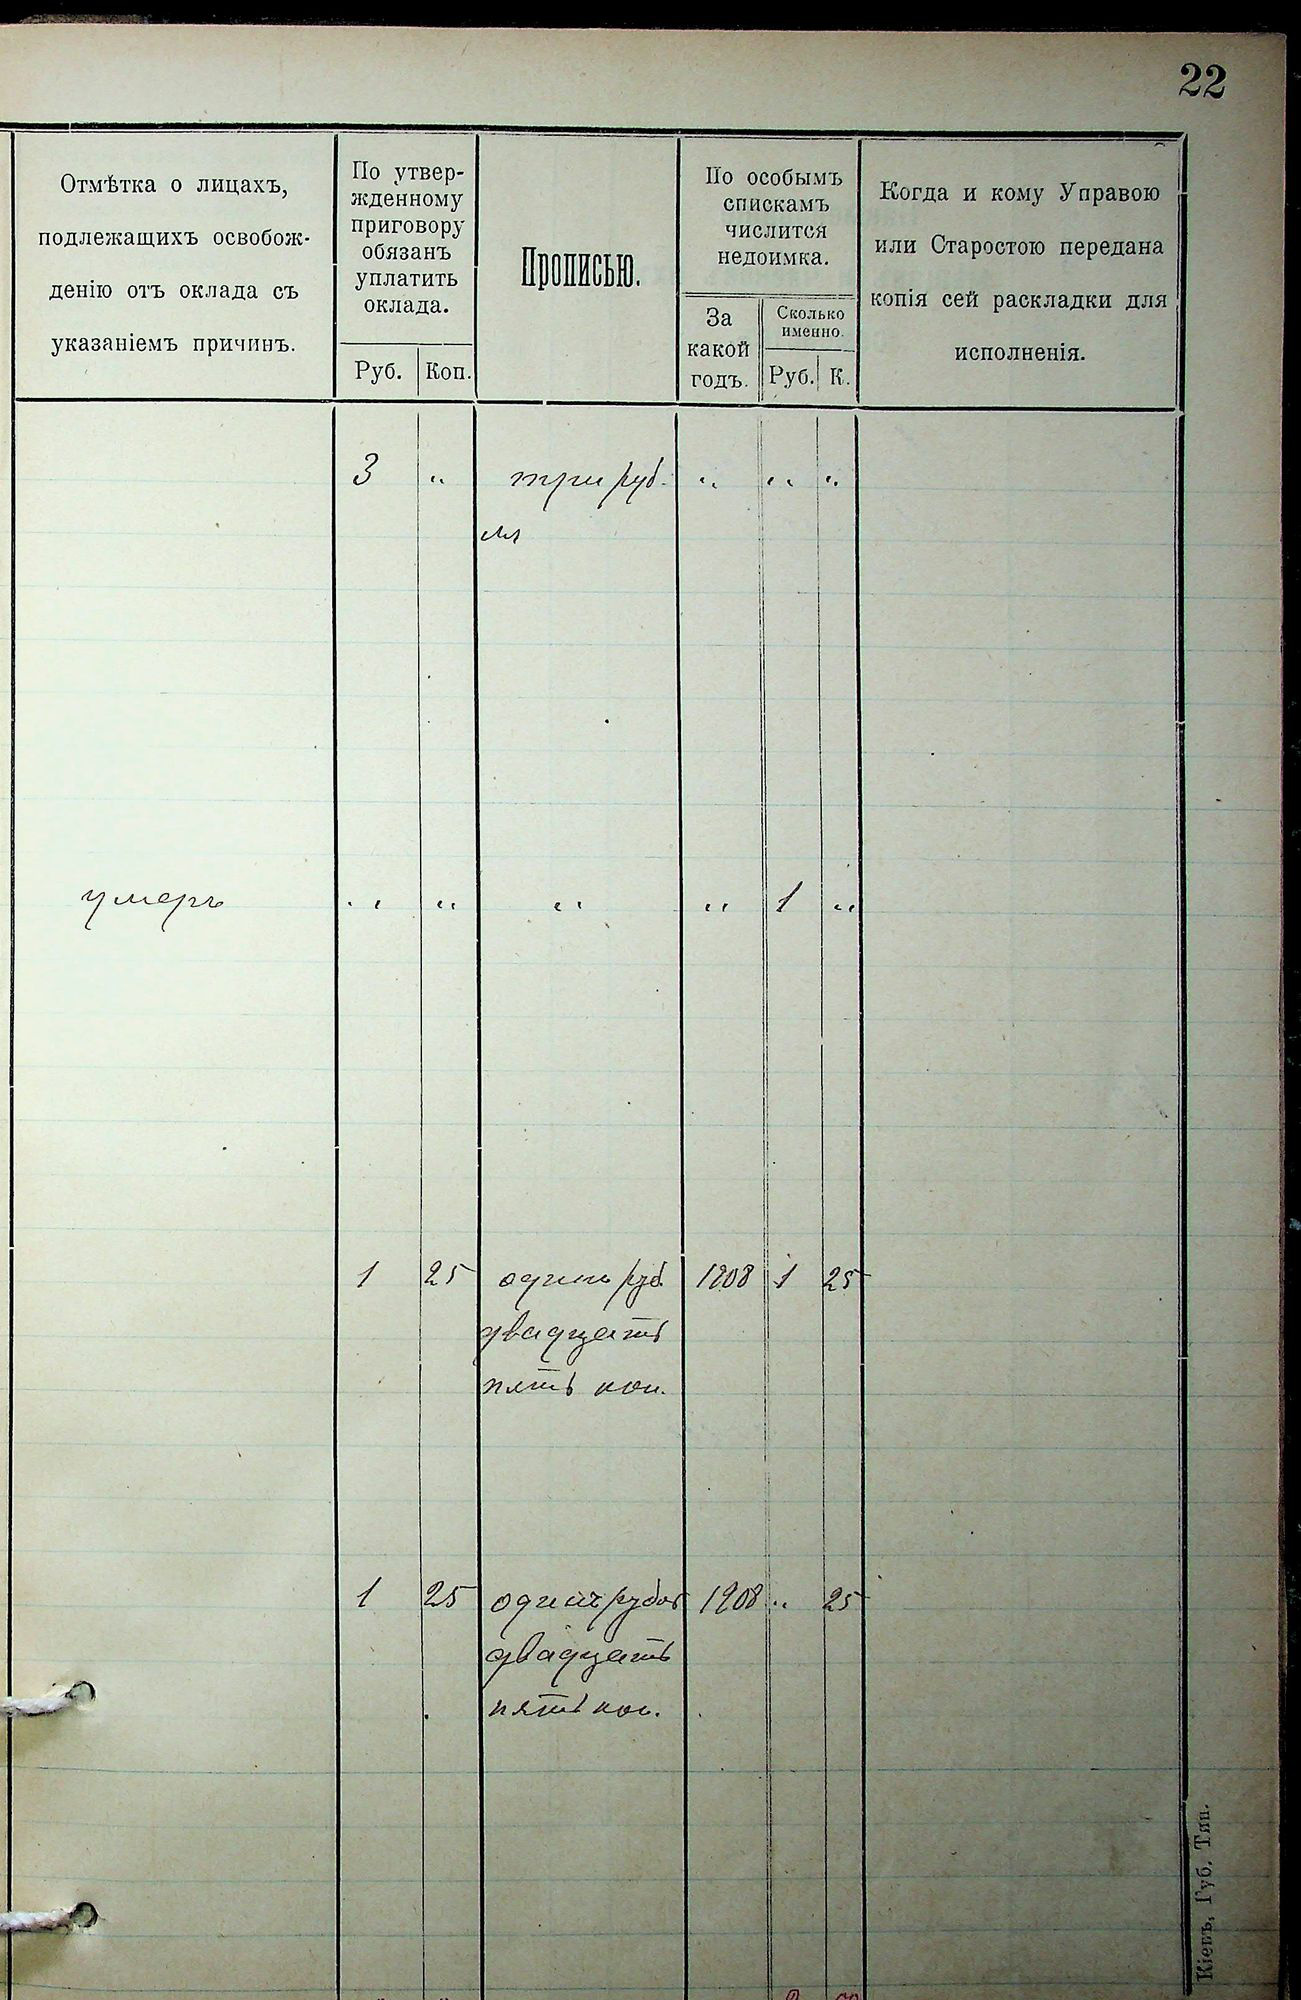 22
Отмѣтка о лицахъ,
подлежащихъ освобож-
денію отъ оклада съ
указаніемъ причинъ.
По утвер-
жденному
приговору
обязанъ
уплатить
оклада.
Руб. Коп.
Прописью.
По особымъ
спискамъ
числится
недоимка.
За
какой
годъ.
Сколько
именно.
Руб. К.
Когда и кому Управою
или Старостою передана
копія сей раскладки для
исполненія.
3 " три руб- " " "
ля
умеръ " " " " 1 "
1 25 одинъ руб. 1908 1 25
двадцать
пять коп.
1 25 одинъ рубль 1908 " 25
двадцать
пять коп.
Кіевъ, Губ. Тип.